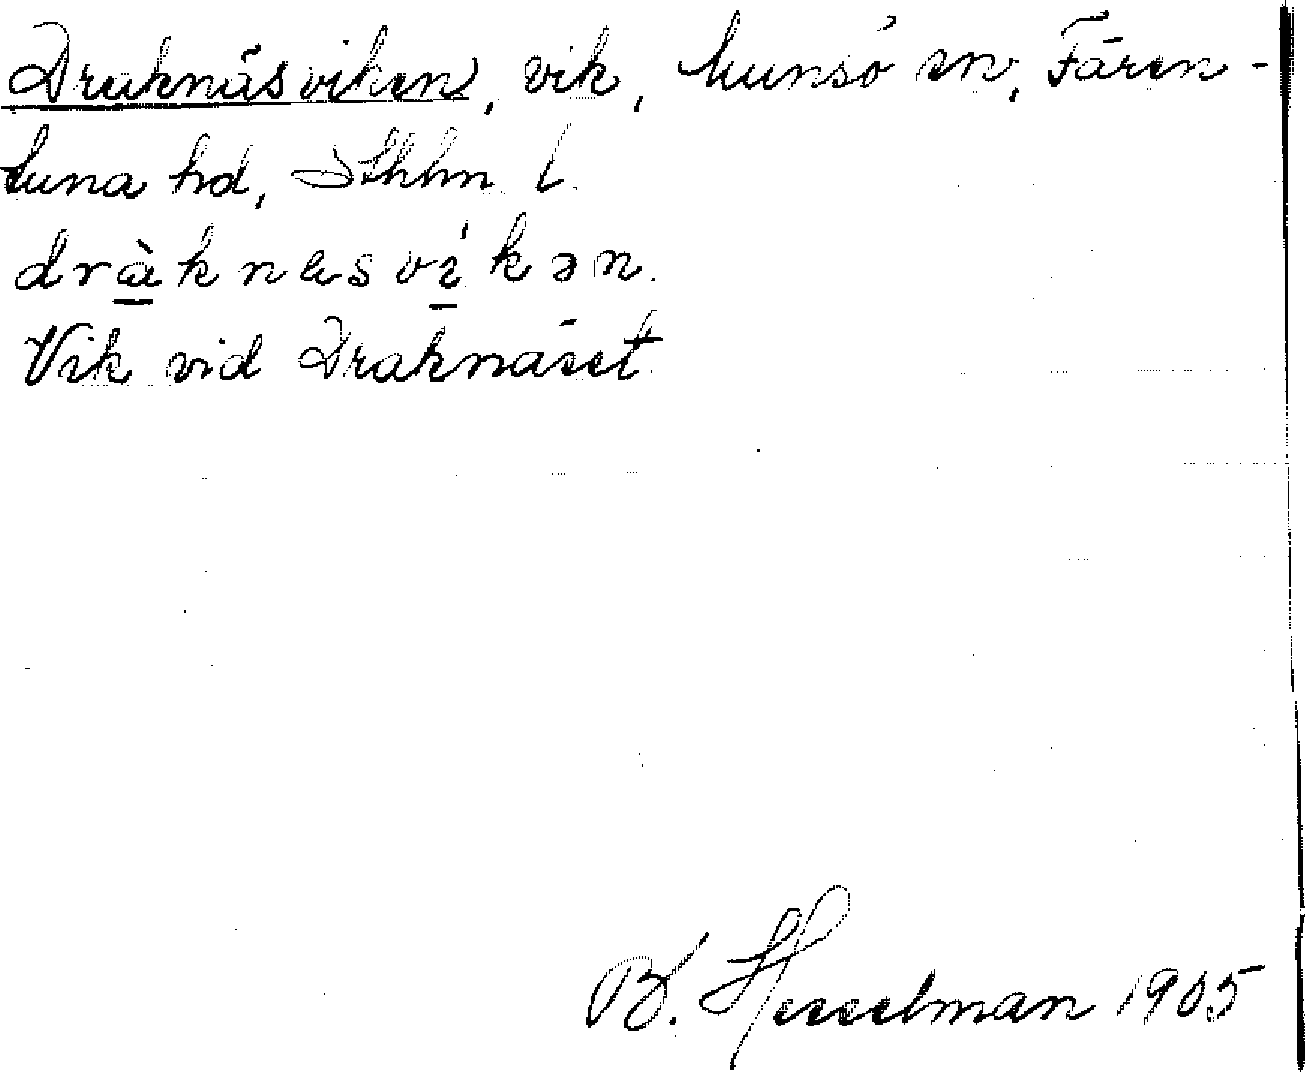 Draknäsviken, vik, Munsö sn, Fären-
tuna hd, Sthlm l.
dràknæsvíkən.
Vik vid Draknäset
B. Hesselman 1905